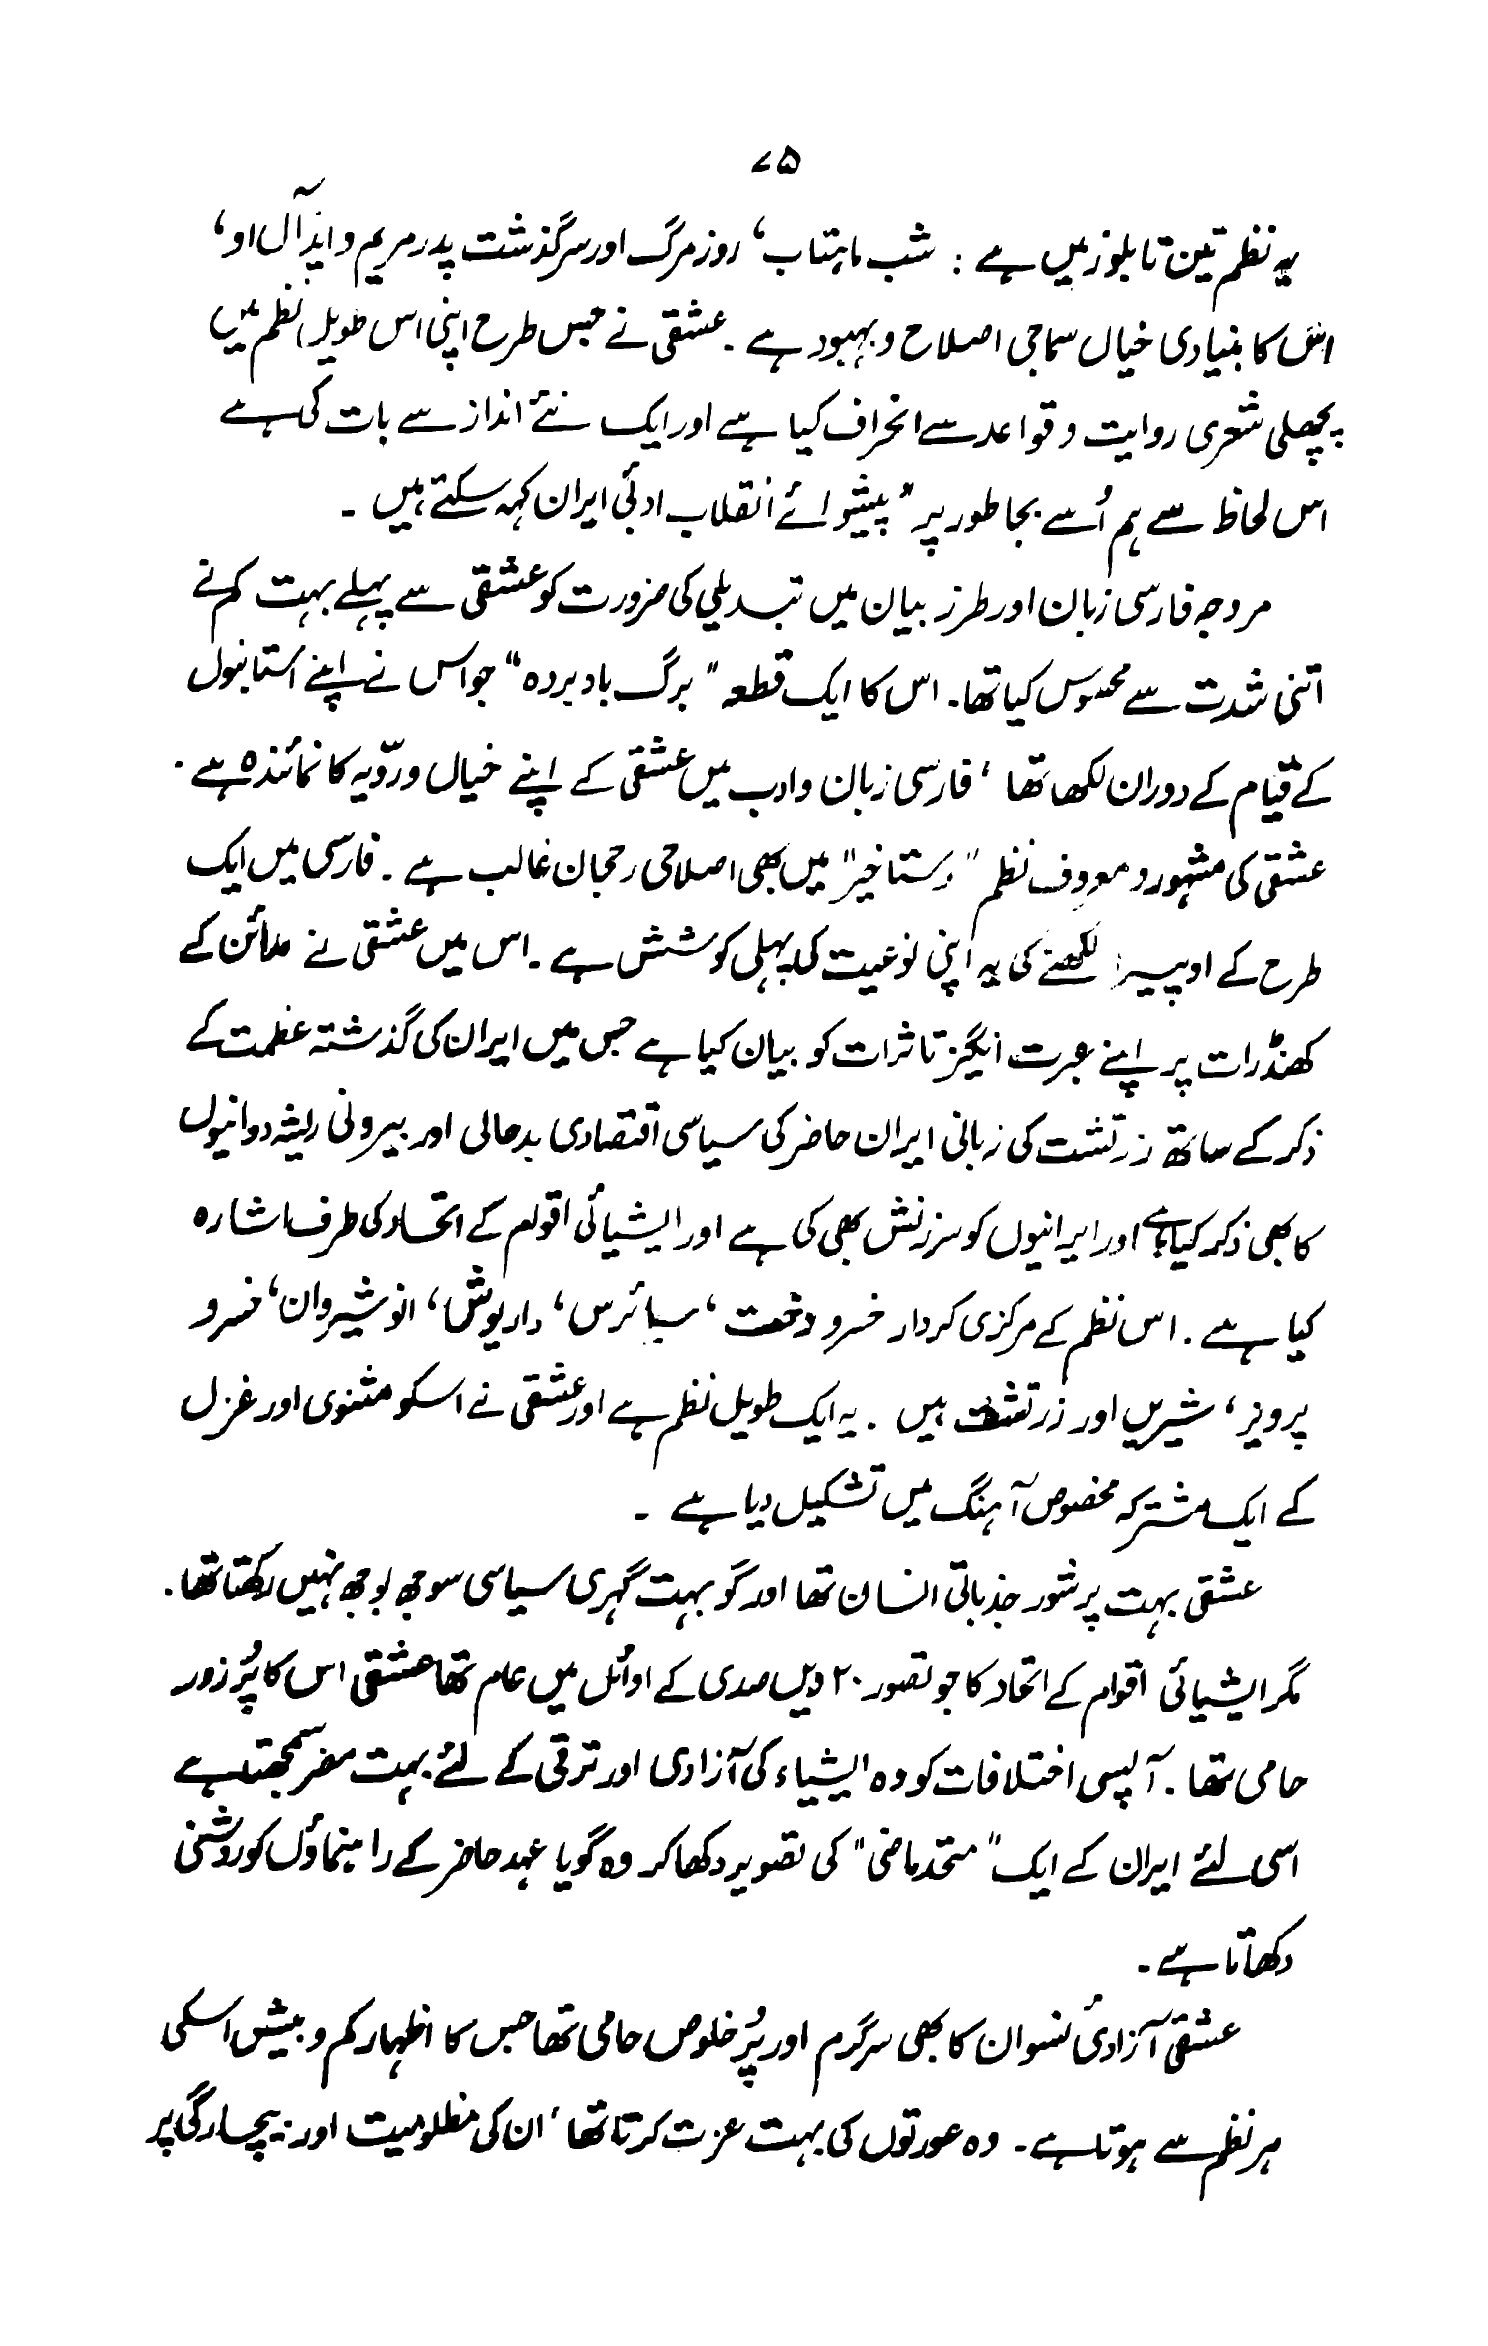 ۷۵
یہ نظم تین تابلوز میں ہے : شب ماہتاب، روز مرگ اور سرگذشت پدر مریم و ایدآل او،
اس کا بنیادی خیال سماجی اصلاح و بہبود ہے ۔ عشقی نے جس طرح اپنی اس طویل نظم میں
پچھلی شعری روایت و قواعد سے انحراف کیا ہے اور ایک نئے انداز سے بات کی ہے
اس لحاظ سے ہم اُسے بجا طور پر "پیشوائے انقلاب ادبی ایران کہہ سکتے ہیں ۔
مروجہ فارسی زبان اور طرز بیان میں تبدیلی کی ضرورت کو عشقی سے پہلے بہت کم نے
اتنی شدت سے محسوس کیا تھا۔ اس کا ایک قطعہ "برگ باد بردہ" جو اس نے اپنے استانبول
کے قیام کے دوران لکھا تھا ، فارسی زبان و ادب میں عشقی کے اپنے خیال و ردّیہ کا نمائندہ ہے ۔
عشقی کی مشہور و معروف نظم "رستاخیز" میں بھی اصلاحی رحجان غالب ہے ۔ فارسی میں ایک
طرح کے اوپیرا لکھنے کی یہ اپنی نوعیت کی پہلی کوشش ہے ۔ اس میں عشقی نے مدائن کے
کھنڈرات پر اپنے عبرت انگیز تاثرات کو بیان کیا ہے جس میں ایران کی گذشتہ عظمت کے
ذکر کے ساتھ زرتشت کی زبانی ایران حاضر کی سیاسی اقتصادی بدحالی اور بیرونی ریشہ دوانیوں
کا بھی ذکر کیا ہے اور ایرانیوں کو سرزنش بھی کی ہے اور ایشیائی اقوام کے اتحاد کی طرف اشارہ
کیا ہے ۔ اس نظم کے مرکزی کردار خسرو دخت ، سیائرس ، داریوش ، انوشیروان ، خسرو
پرویز ، شیریں اور زرتشت ہیں ۔ یہ ایک طویل نظم ہے اور عشقی نے اسکو مثنوی اور غزل
کے ایک مشترکہ مخصوص آہنگ میں تشکیل دیا ہے ۔
عشقی بہت پرشور جذباتی انسان تھا اور گو بہت گہری سیاسی سوجھ بوجھ نہیں رکھتا تھا ۔
مگر ایشیائی اقوام کے اتحاد کا جو تصور ۲۰ ویں صدی کے اوائل میں عام تھا عشقی اس کا پُرزور
حامی تھا ۔ آپسی اختلافات کو وہ ایشیاء کی آزادی اور ترقی کے لئے بہت مضر سمجھتا ہے
اسی لئے ایران کے ایک "متحد ماضی" کی تصویر دکھا کر وہ گویا عہد حاضر کے راہنماؤں کو روشنی
دکھاتا ہے ۔
عشقی آزادیٔ نسوان کا بھی سرگرم اور پُرخلوص حامی تھا جس کا اظہار کم و بیش اسکی
ہر نظم سے ہوتا ہے ۔ وہ عورتوں کی بہت عزت کرتا تھا ، ان کی مظلومیت اور بیچارگی پر